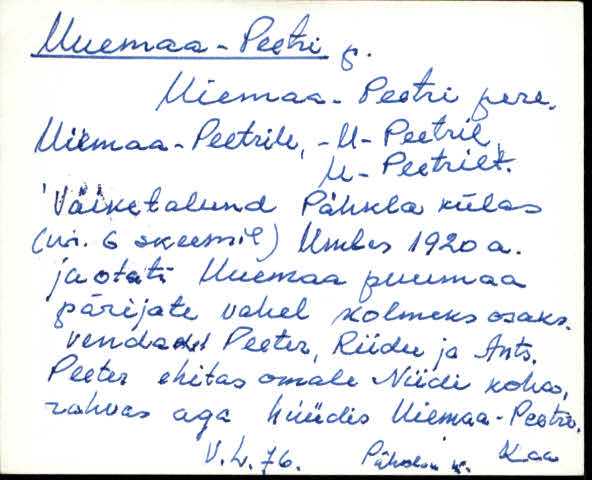 Uuemaa-Peetri p.
Uiemaa-Peetri pere.
Uiemaa-Peetrile, -U-Peetril,
U-Peetrilt.
Väiketalund Pähkla külas
(nr. 6 skeemil) Umbes 1920 a.
jaotati Uuemaa puumaa
pärijate vahel kolmeks osaks.
vendadel Peeter, Riidu ja Ants.
Peeter ehitas omale Niidi koha,
rahvas aga hüüdis Uiemaa-Peetri.
V.L.76. Pähkla k. Kaa